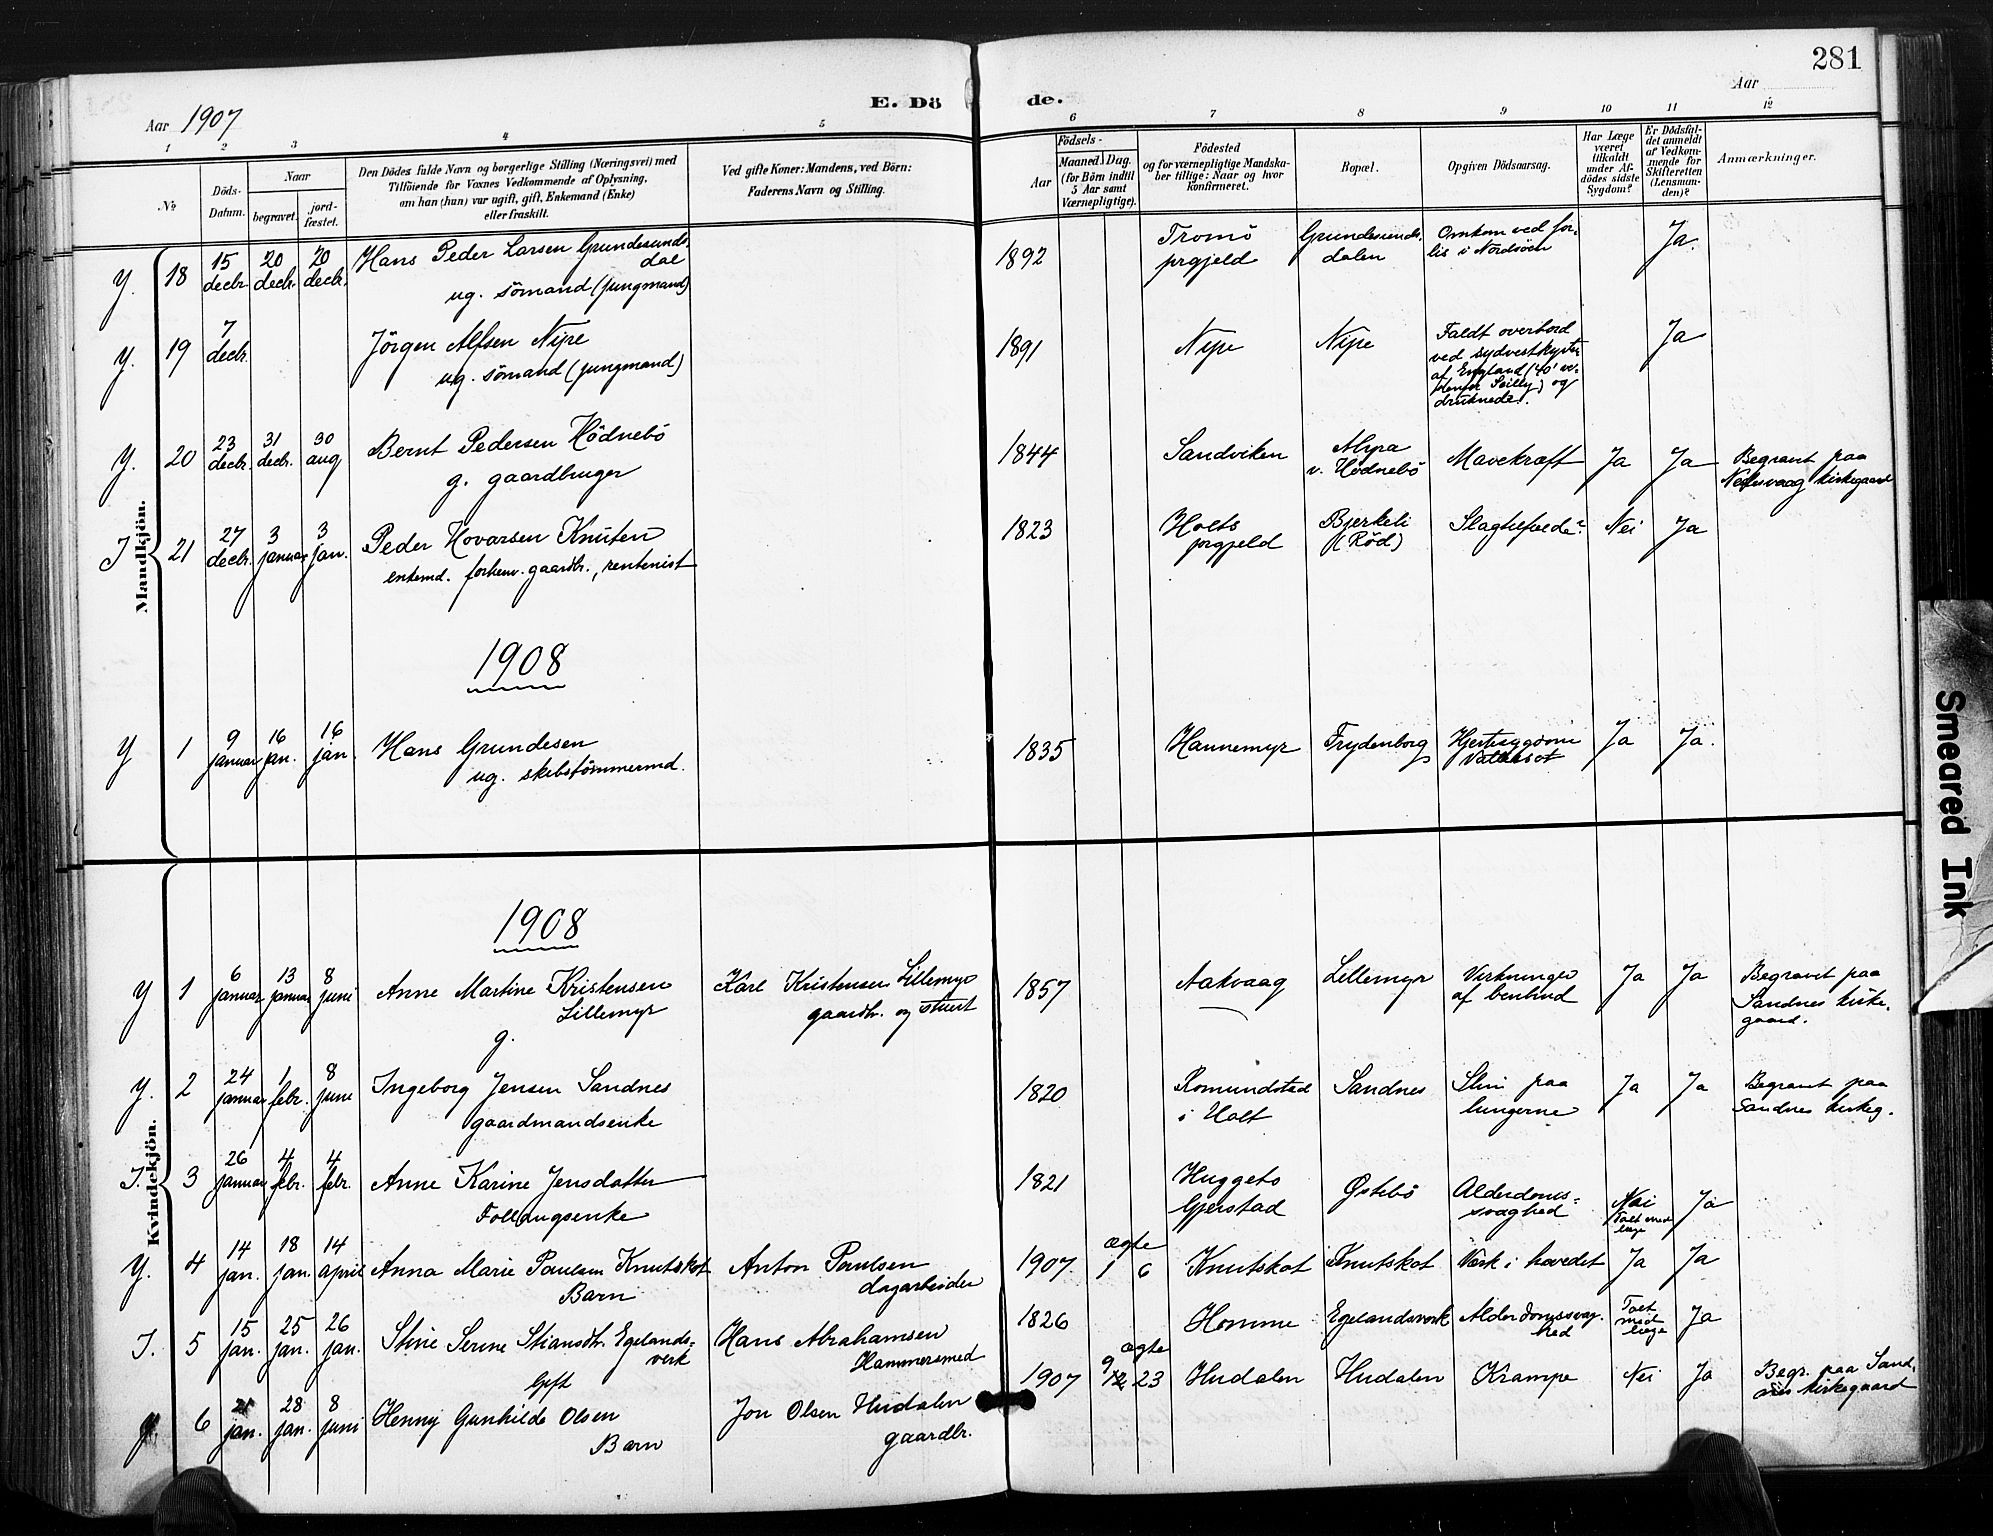 281
Aar 1907
E. Dö de.
Aar
1 2 3 4 5 6 7 8 9 10 11 12
No
Döds-
Datum.
Naar
begravet.
jord-
fæstet.
Den Dödes fulde Navn og borgerlige Stilling (Næringsvei) med
Tilföiende for Voxnes Vedkommende af Oplysning,
om han (hun) var ugift, gift, Enkemand (Enke)
eller fraskilt.
Ved gifte Koner: Mandens, ved Börn:
Faderens Navn og Stilling.
Födsels-
Aar
Maaned. Dag.
(for Börn indtil
5 Aar samt
Værnepligtige).
Födested
og for værnepligtige Mandska-
ber tillige: Naar og hvor
konfirmeret.
Bopæl.
Opgiven Dödsaarsag.
Har Læge
været
tilkaldt
under Af-
dödes sidste
Sygdom?
Er Dödsfal-
det anmeldt
af Vedkom-
mende for
Skifteretten
(Lensman-
den)?
Anmærkninger.
Mandkjön.
Y. 18 15 decbr. 20 decbr. 20 decbr. Hans Peder Larsen Grundesunds-
dal
ug. sömand (jungmand)
1892 Tromö
prgjeld Grundesunds-
dalen Omkom ved for-
lis i Nordsöen Ja.
Y. 19 7 decbr. Jörgen Alfsen Nipe
ug. sömand (jungmand)
1891 Nipe Nipe Faldt overbord
ved sydvestkysten
af England (40' ve-
stenfor Scilly) og
druknede. Ja
Y. 20 23 decbr. 31 decbr. 30 aug Bernt Pedersen Hödnebö
g. gaardbruger
1844 Sandviken
v. Hödnebö Mavekræft Ja Ja Begravet paa
kirkegaard
I 21 27 decbr. 3 januar 3 jan. Peder Hovarsen Knuten
enkemd. forhenv. gaardbr., rentenist
1823 Holts
prgjeld Bjerkeli
(Röd) Slagtilfælde? Nei Ja
1908
Y 1 9 januar 16 jan. 16 jan. Hans Grundesen
ug. skibstömmermd.
1835 Hannemyr Frydenborg Hjertesygdom
Vattersot Ja Ja.
Kvindekjön.
1908
Y 1 6 januar 13 januar 8 juni Anne Martine Kristensen
Lillemyr
g.
Karl Kristensen Lillemyr
gaardbr. og stuert
1857 Aakvaag Lillemyr Virkninger
af benbrud Ja Ja Begravet paa
Sandnes kirke-
gaard.
Y. 2 24 januar 1 febr. 8 juni Ingeborg Jensen Sandnes
gaardmandsenke
1820 Romundstad
i Holt Sandnes Slim paa
lungerne Ja Ja Begravet paa
Sandnes kirkeg.
I. 3 26 januar 4 febr. 4 febr. Anne Karine Jensdatter
Follaugsenke
1821 Huggets
Gjerstad Østebö Alderdoms-
svaghed Nei
Talt med
læge Ja
Y. 4 14 jan. 18 jan. 14 april Anna Marie Paulsen Knutskot
Barn
Anton Paulsen
dagarbeider
1907 ægte
1 6 Knutskot Knutskot Værk i hovedet Ja Ja
I. 5 15 jan. 25 jan. 26 jan. Stine Serine Stiansdtr. Egelands-
verk
Gift
Hans Abrahamsen
Hammersmed
1826 Homme Egelandsverk Alderdomssvag-
hed Talt
med
læge Ja
6 21 jan. 28 jan. 8 juni Henny Gunhilde Olsen
Barn
Jon Olsen Hudalen
gaardbr.
1907 ægte
9
12 23 Hudalen Hudalen Krampe Nei Ja Begr. paa Sand-
nes kirkegaard
Smeared Ink